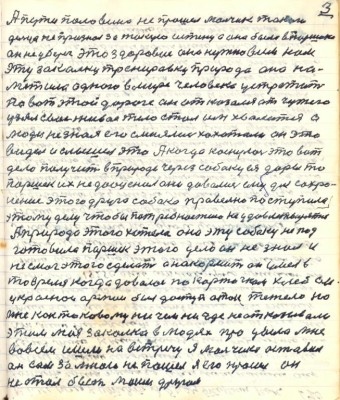 3
А пути половина не прошел мальчик такого
дела не признал за такую истину а она была в Паршеке
он не думал это здоровие оно нужно всем нам
эту закалку тренировку природа она на-
метила одного в мире человека устроить
по вот этой дороге он отказался от чужего
узнал свое живое тело стал им хвалится а
люди не зная его смеялись хохотали он это
видел и слышал это А когда коснулось это вот
дело получить в природе через собаку ея дары то
Паршек их не дооценил они давались ему для сохра-
нение этого друга собака правильно поступила
этому делу чтобы потребностию не удовлетворятся
А природа этого хотела она эту собаку не под
готовила Паршек этого дела он не знал и
не смог этого сделать а накормить он имел в
то время когда давался по карточкам хлеб он
украл
армии был доступ этом тяжело но
уже как таковому ни чем ни где не отказывали
этим моя закалка в людях про
мне
во всем шли на встречу Я мальчика оставил
он сам за мною не пошел я его просил он
не стал быть моим другом